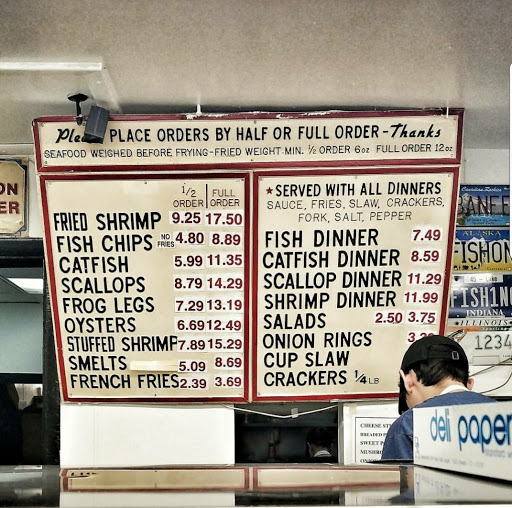 PLACE ORDERS BY HALF OR FULL ORDER - Thanks
SEAFOOD WEIGHED BEFORE FRYING - FRIED WEIGHT: MIN. ½ ORDER 6oz FULL ORDER 12oz
1/2 ORDER FULL ORDER
FRIED SHRIMP 9.25 17.50
FISH CHIPS NO FRIES 4.80 8.89
CATFISH 5.99 11.35
SCALLOPS 8.79 14.29
FROG LEGS 7.29 13.19
OYSTERS 6.69 12.49
STUFFED SHRIMP 7.89 15.29
SMELTS 5.09 8.69
FRENCH FRIES 2.39 3.69
★ SERVED WITH ALL DINNERS
SAUCE, FRIES, SLAW, CRACKERS,
FORK, SALT, PEPPER
FISH DINNER 7.49
CATFISH DINNER 8.59
SCALLOP DINNER 11.29
SHRIMP DINNER 11.99
SALADS 2.50 3.75
ONION RINGS
CUP SLAW
CRACKERS 1/4 LB
ON
ER
ALASKA
FISHON
FISH1N
INDIANA
ILLINOIS
1234
CHEESE
BREADED
SWEET
deli paper